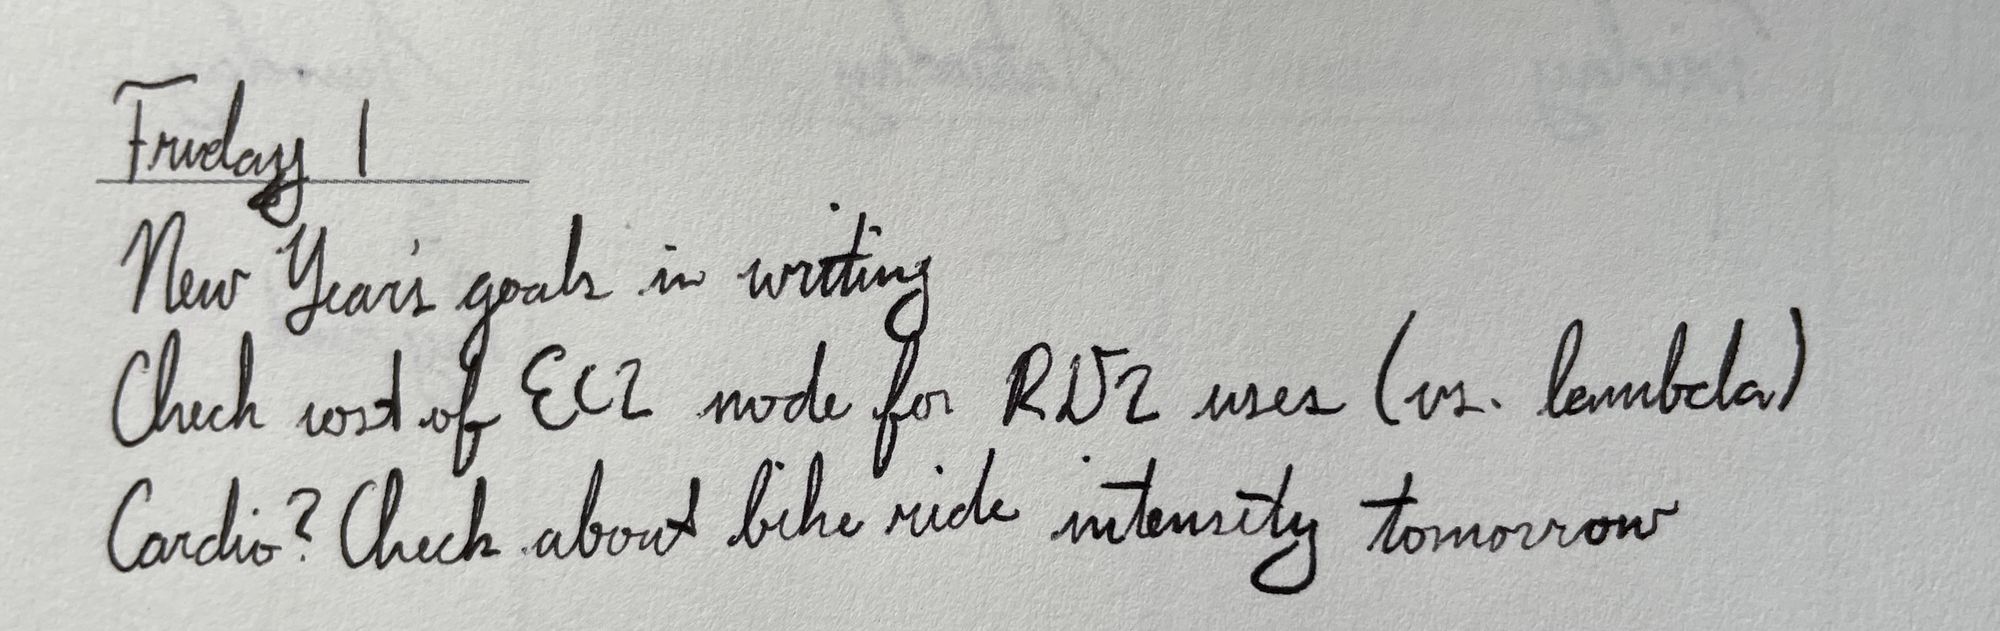 Friday 1
New Year's goals in writing
Check cost of EC2 node for RD2 uses (vs. lambda)
Cardio? Check about bike ride intensity tomorrow